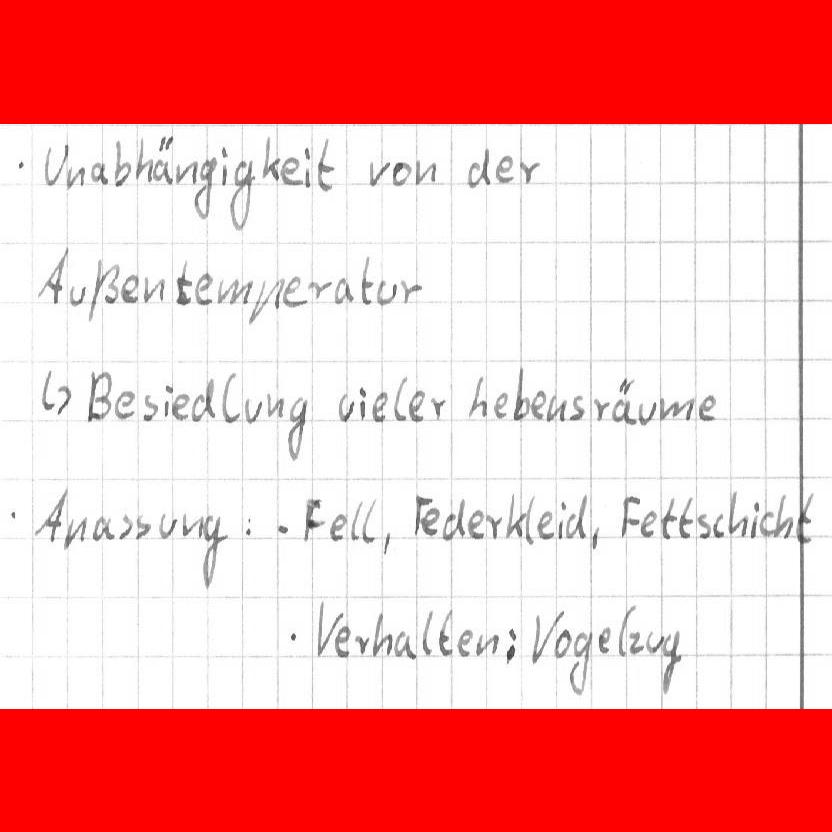 · Unabhängigkeit von der
Außentemperatur
↳ Besiedlung vieler Lebensräume
· Anassung: - Fell, Federkleid, Fettschicht
· Verhalten: Vogelzug